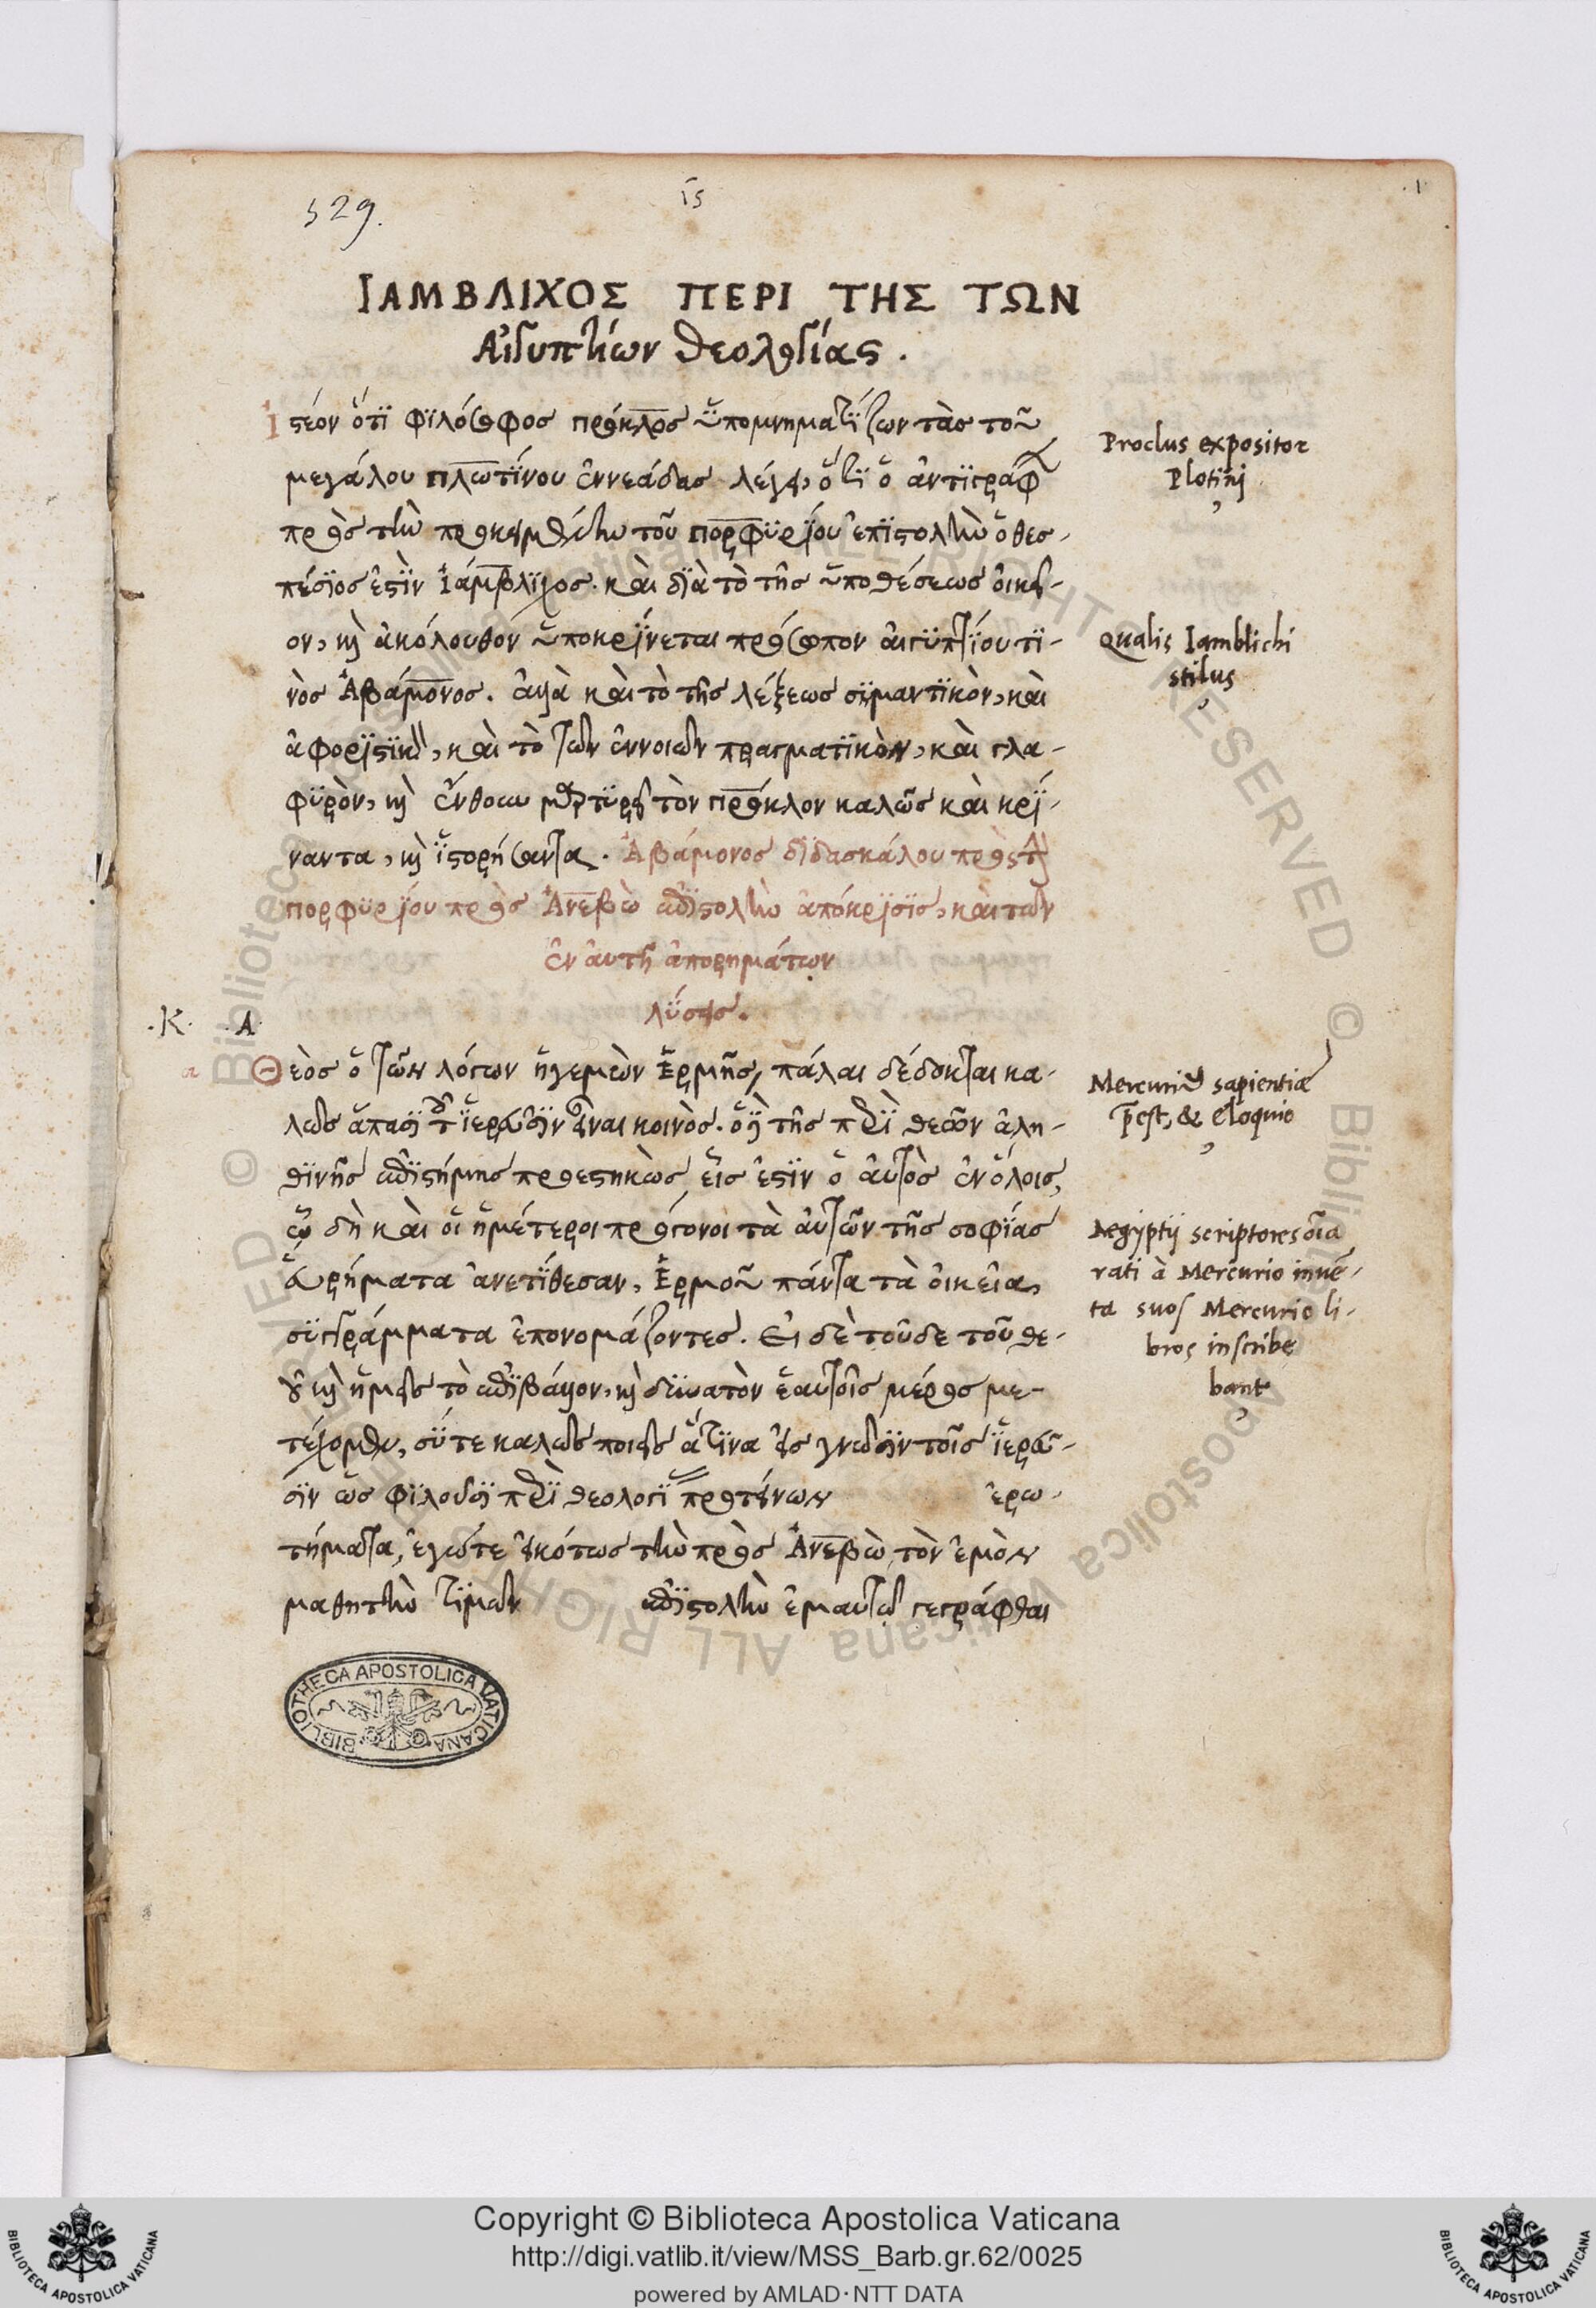 529.
ις
1
ΙΑΜΒΛΙΧΟΣ ΠΕΡΙ ΤΗΣ ΤΩΝ
Αἰγυπτίων θεολογίας.
Ἰστέον ὅτι φιλόσοφος πρόκλος ὑπομνηματίζων τὰς τοῦ
μεγάλου πλωτίνου ἐννεάδας λέγει, ὅτι ὁ ἀντιγράφ
πρὸς τὴν προκειμένην τοῦ πορφυρίου ἐπιστολὴν ὁ θεσ-
πέσιος ἐστὶν Ἰάμβλιχος. καὶ διὰ τὸ τῆς ὑποθέσεως οἰκεῖ-
ον, καὶ ἀκόλουθον ὑποκρίνεται πρόσωπον αἰγυπτίου τι-
νὸς Ἀβάμονος. ἀλλὰ καὶ τὸ τῆς λέξεως σημαντικὸν, καὶ
ἀφοριστικὸν, καὶ τὸ τῶν ἐννοιῶν πραγματικὸν, καὶ γλα-
φυρὸν, καὶ ἔνθουν μαρτυρεῖ τὸν πρόκλον καλῶς καὶ κρί-
ναντα, καὶ ἱστορήσαντα. Ἀβάμονος διδασκάλου πρὸς τὴν
πορφυρίου πρὸς Ἀνεβὼ ἐπιστολὴν ἀπόκρισις, καὶ τῶν
ἐν αὐτῇ ἀπορημάτων
λύσεις.
.Κ. .Α.
α Θεὸς ὁ τῶν λόγων ἡγεμὼν Ἑρμῆς, πάλαι δέδοκται κα-
λῶς ἅπασι τοῖς ἱερεῦσιν εἶναι κοινὸς. ὁ δὲ τῆς περὶ θεῶν ἀλη-
θινῆς ἐπιστήμης προεστηκὼς εἷς ἐστὶν ὁ αὐτὸς ἐν ὅλοις,
ᾧ δὴ καὶ οἱ ἡμέτεροι πρόγονοι τὰ αὐτῶν τῆς σοφίας
εὑρήματα ἀνετίθεσαν, Ἑρμοῦ πάντα τὰ οἰκεῖα,
συγγράμματα ἐπονομάζοντες. Εἰ δὲ τοῦδε τοῦ θε-
οῦ καὶ ἡμεῖς τὸ ἐπιβάλλον, καὶ δυνατὸν ἑαυτοῖς μέρος με-
τέχομεν, σύ τε καλῶς ποιεῖς ἅτινα εἰς γνῶσιν τοῖς ἱερεῦ-
σιν ὡς φιλοῦσι περὶ θεολογί προτείνων ἐρω-
τήματα, ἐγώ τε εἰκότως τὴν πρὸς Ἀνεβὼ τὸν ἐμὸν
μαθητὴν τιμῶν ἐπιστολὴν ἐμαυτῷ γεγράφθαι
Proclus expositor
Plotini
Qualis Iamblichi
stilus
Mercurius sapientiae
praeest, & eloquio
Aegyptij scriptores oīa
rati à Mercurio inuē-
ta suos Mercurio li-
bros inscribe
bant
BIBLIOTHECA APOSTOLICA VATICANA
Copyright © Biblioteca Apostolica Vaticana
http://digi.vatlib.it/view/MSS_Barb.gr.62/0025
powered by AMLAD·NTT DATA